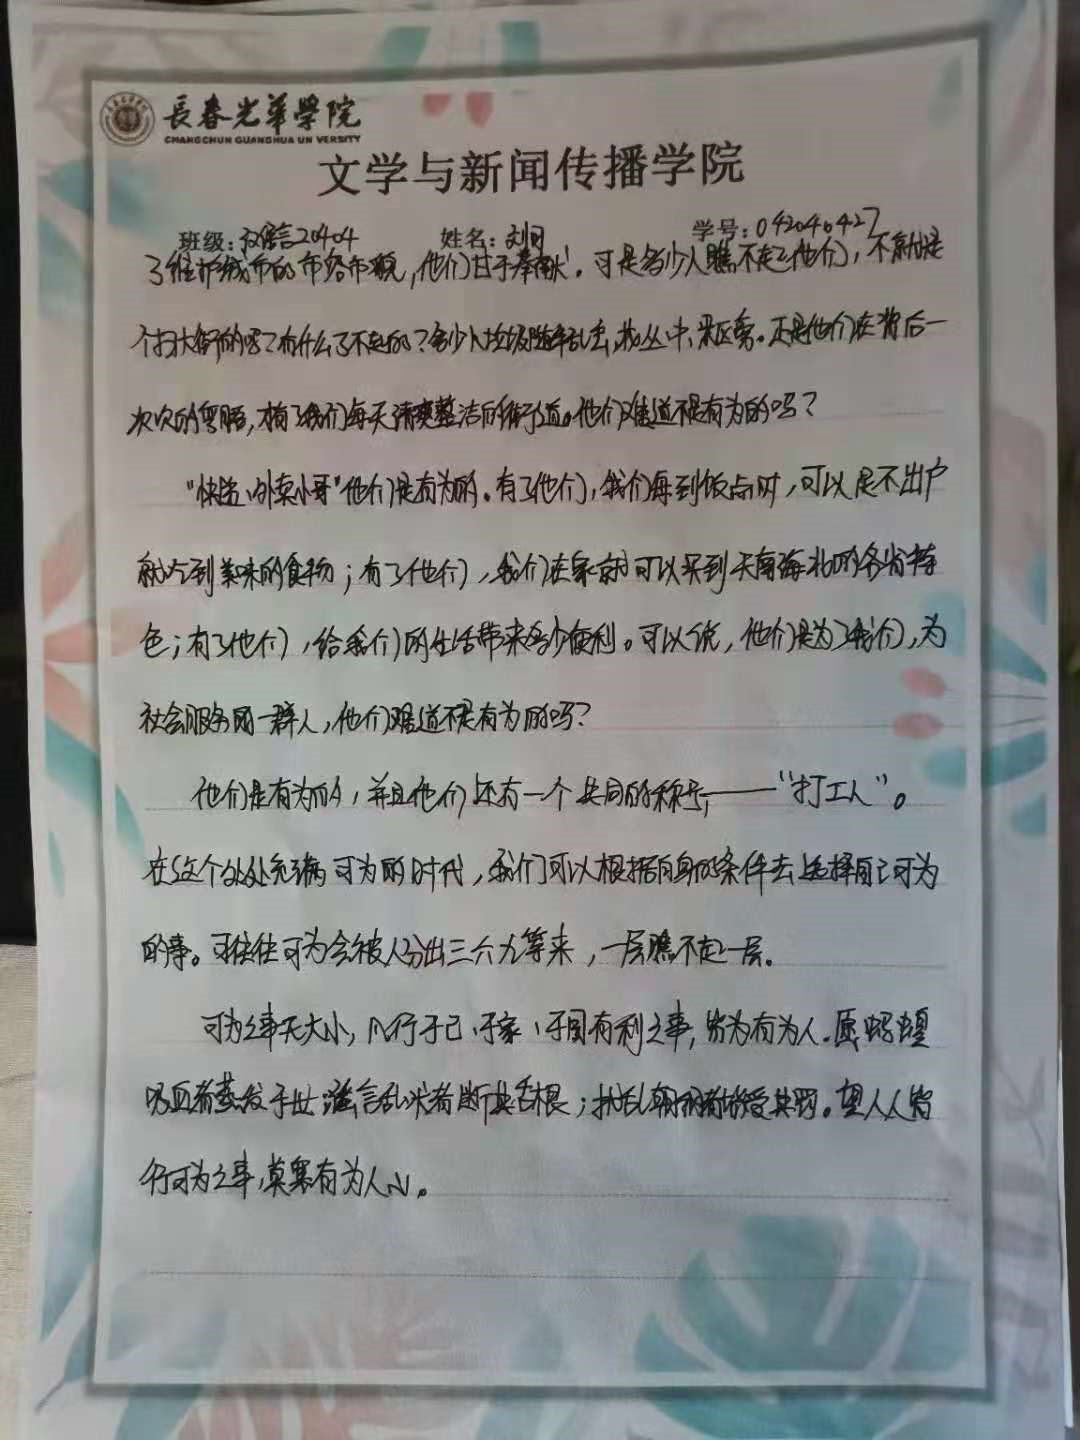 長春光華學院
CHANGCHUN GUANGHUA UN VERSITY
文学与新闻传播学院
班级:汉语言20404 姓名:刘 学号:042040427
了维护城市的市容市貌,他们甘于奉献。可是多少人瞧不起他们,不就是
个扫大街的吗?有什么了不起的?多少人垃圾随手乱丢,。还是他们在背后一
次次的弯腰,换了我们每天清爽整洁的街道。他们难道不是有为的吗?
“快递、外卖小哥”他们是有为的。有了他们,我们每到饭点时,可以足不出户
就吃到美味的食物;有了他们,我们在家就可以买到天南海北的各省特
色;有了他们,给我们的生活带来多少便利。可以说,他们是为了我们,为
社会服务的一群人,他们难道不是有为的吗?
他们是有为的,并且他们还有一个共同的称号,——“打工人”。
在这个处处充满可为的时代,我们可以根据自身的条件去选择自己可为
的事。可往往可为会被人分出三六九等来,一层瞧不起一层。
可为之事无大小,凡行于己、于家、于国有利之事,皆为有为人。愿
吸血者蒸发于世;谣言乱吠者断其舌根;扰乱朝纲者皆受其罚。望人人皆
行可为之事,莫寒有为人心。